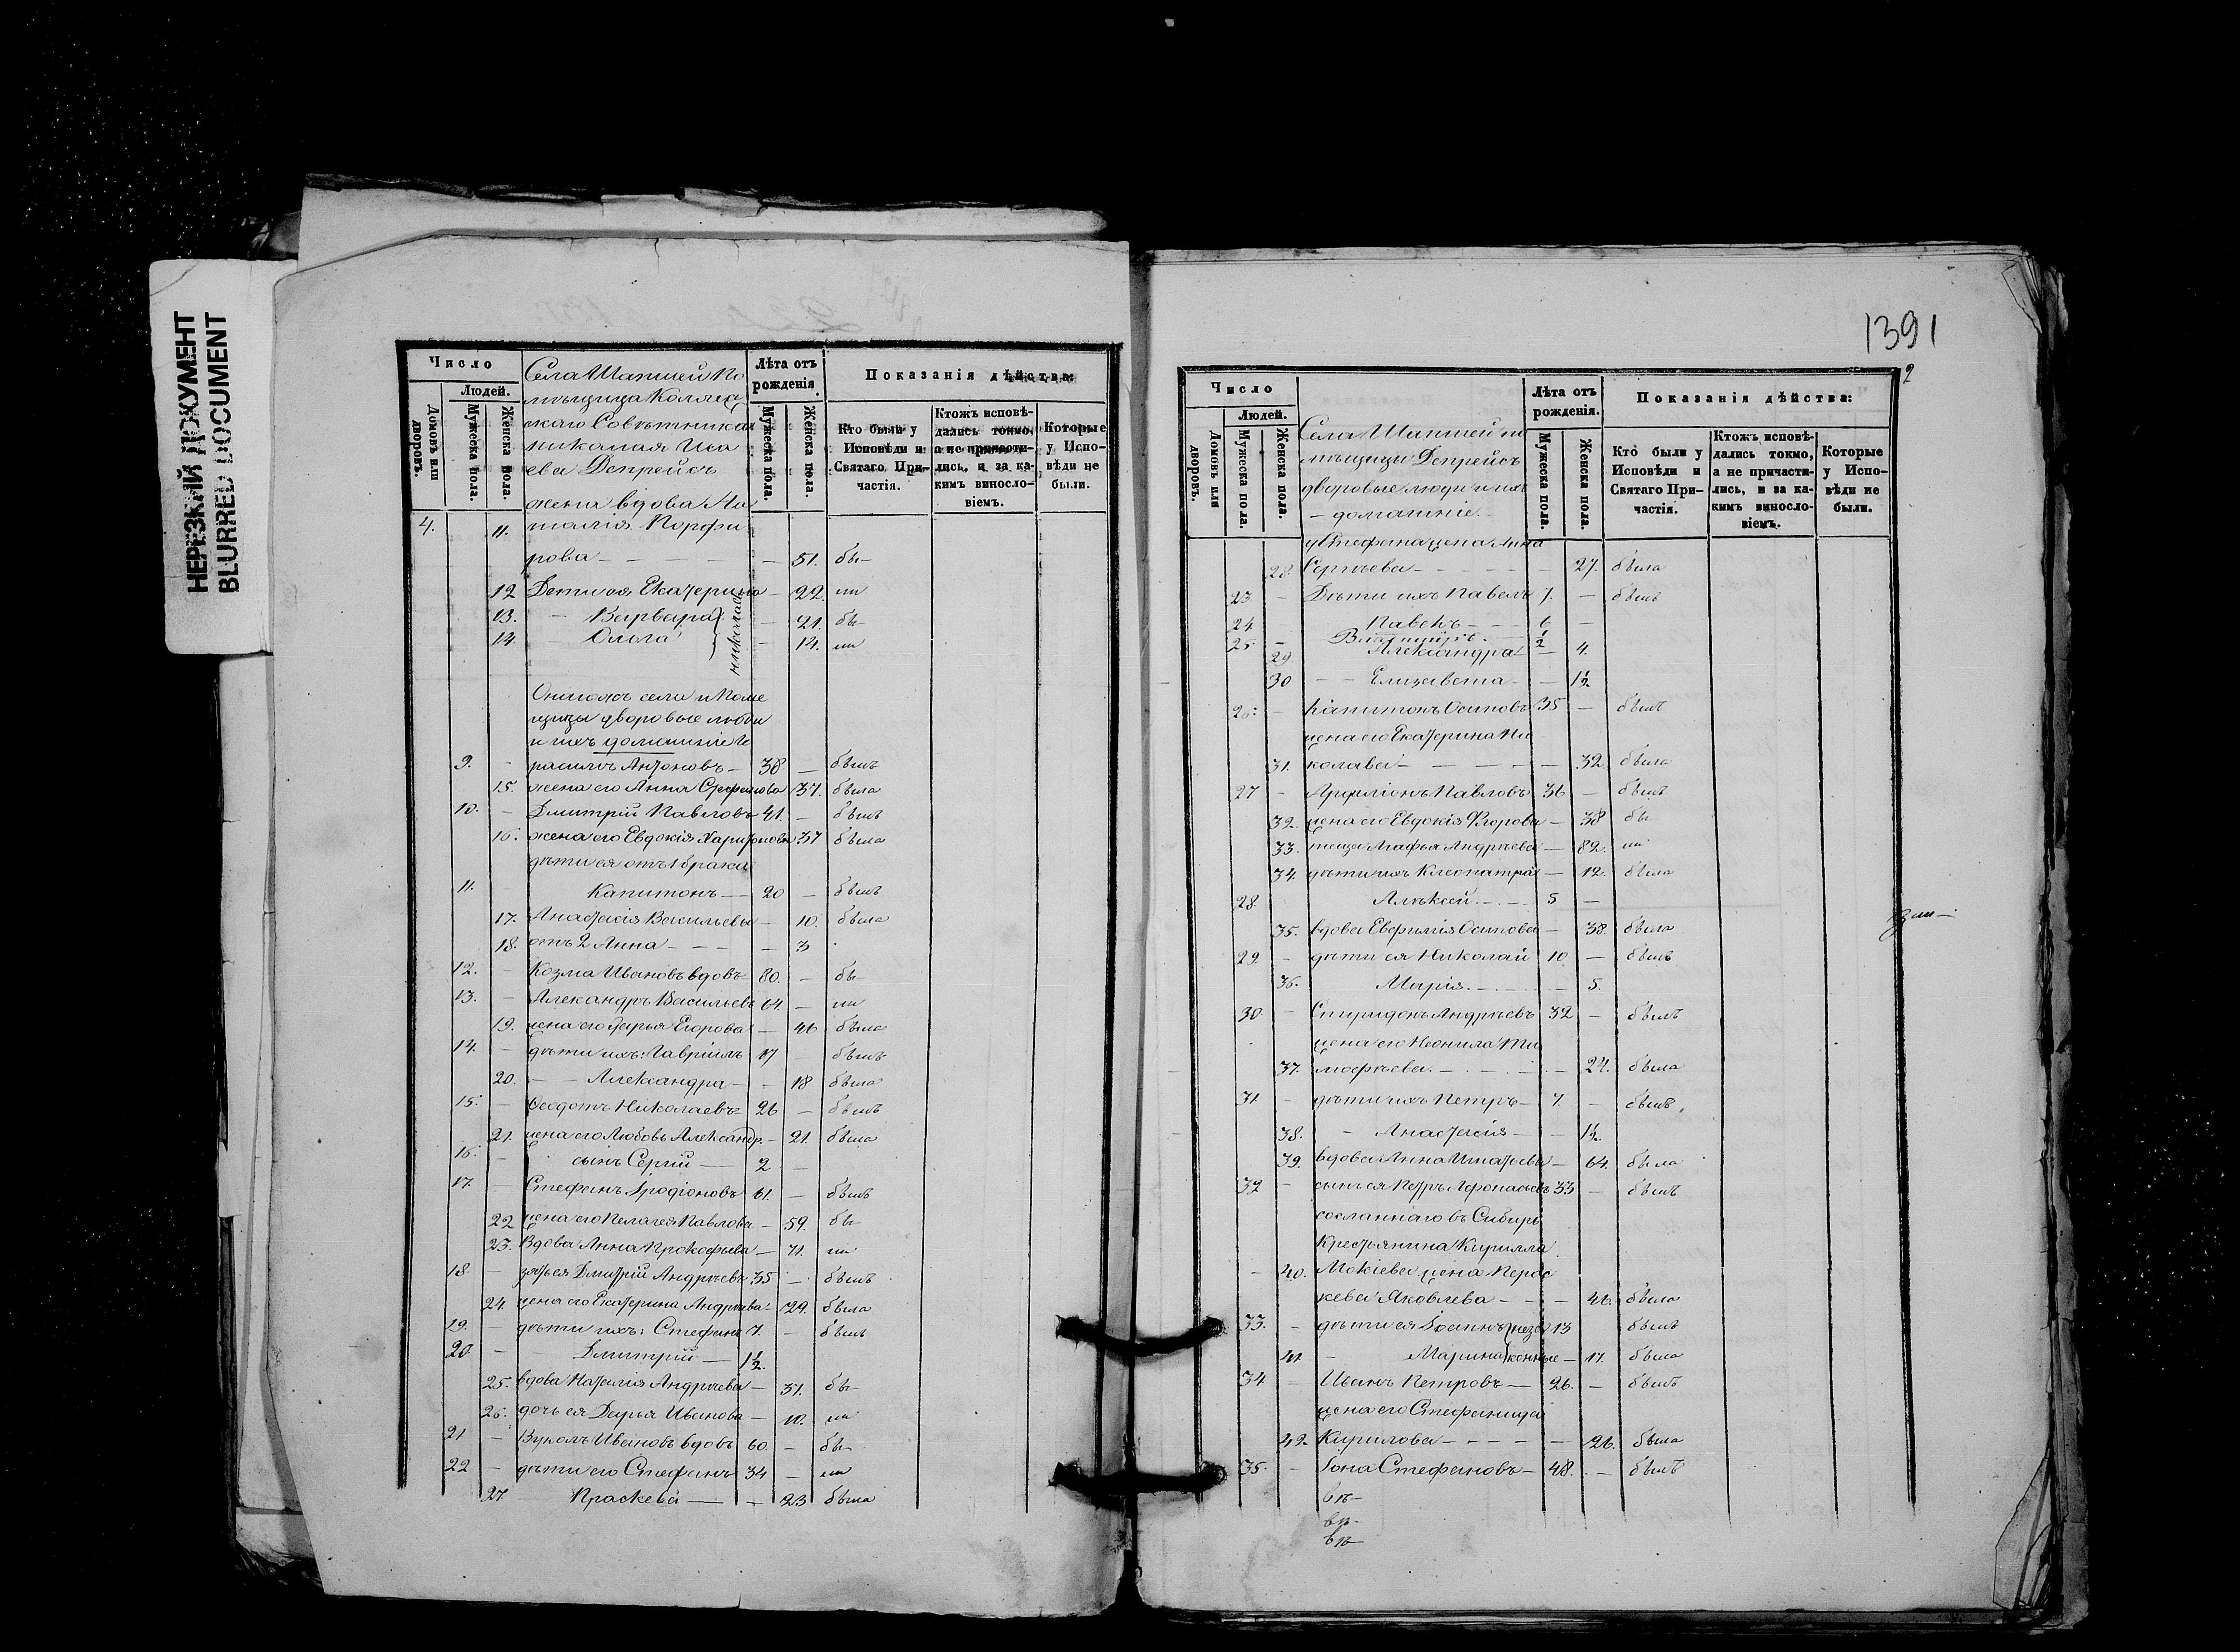 НЕРЕЗКИЙ ДОКУМЕНТ
BLURRED DOCUMENT
Число
Людей.
Домовъ или дворовъ.
Мужеска пола.
Женска пола.
Села Шапшей По
мѣщица Коллеж
скаго Совѣтника
Николая Ива
ева Депрейсъ
жена вдова На
Лѣта отъ рожденія
Мужеска пола.
Женска пола.
Показанія дѣйства:
Кто были у Исповѣди и Святаго Причастія.
Ктожъ исповѣдались токмо, а не причастились, и за какимъ винословіемъ.
Которые у Исповѣди не были.
4. 11. талія Порфи
рова — 51. бы-
12 Дети ея Екатерина — 22. ли
13. Варвара — 21. бы-
14. Ольга — 14. ли
Николаев
Онагожъ села и Поме
щицы дворовые люди
и ихъ домашніе Ге
9. — расимъ Антоновъ — 38 — былъ
15. жена его Анна Стефанова 37. была
10. — Дмитрій Павловъ 41. — былъ
16. жена его Евдокія Харитонова 37 была
дѣти ея отъ 1 брака
11. Капитонъ — 20 — былъ
17. Анастасія Васильева — 10. была
18. отъ 2 Анна — 3
12. — Козма Ивановъ вдовъ 80. — бы-
13. — Александръ Васильевъ 64. — ли
19. жена его Дарья Егорова — 46 была
14. — дѣти ихъ: Гавріилъ 17 — былъ
20. — Александра — 18 была
15. — Феодотъ Николаевъ 26 — былъ
21. жена его Любовь Александр. — 21. была
16. — сынъ Сергій — 2 —
17. — Стефанъ Иродіоновъ 61. — былъ
22 жена его Пелагея Павлова — 59. бы-
23. Вдова Анна Прокофьева — 71. ли
18 — зять ея Дмитрій Андреевъ 35 — былъ
24 жена его Екатерина Андреева — 29. была
19. — дѣти ихъ: Стефанъ 7. — былъ
20. — Дмитрій — 1½.
25. вдова Наталія Андреева — 37. бы-
26. дочь ея Дарья Иванова — 10. ли
21 — Вуколъ Ивановъ вдовъ 60. — бы-
22 — дѣти его Стефанъ 34 — ли
27. Праскева — 23 была
1391
2
Число
Людей.
Домовъ или дворовъ.
Мужеска пола.
Женска пола.
Села Шапшей по
мѣщицы Депрейсъ
дворовые люди и ихъ
— домашніе.
Лѣта отъ рожденія.
Мужеска пола.
Женска пола.
Показанія дѣйства:
Кто были у Исповѣди и Святаго Причастія.
Ктожъ исповѣдались токмо, а не причастились, и за какимъ винословіемъ.
Которые у Исповѣди не были.
у Стефана жена Анна
28. Сергѣева — 27. была
23 — Дѣти ихъ Павелъ 7. — былъ
24 Павелъ — 6 —
25. — Владиміръ — ½
29 Александра — 4.
30 — Елизавета — 1½
26. — Капитонъ Осиповъ 35 — былъ
жена его Екатерина Ни
31. колаева — 32. была
27 — Павловъ 36 — былъ
32. жена его Евдокія Флорова — 38 бы
33. теща Агафья Андреева — 82. ли
34. дѣти ихъ Клеопатра — 12. была
28. Алѣксѣй — 5 —
35. вдова Евфимія Осипова — 38. была
29. — дѣти ея Николай 10. — былъ
36. Марія — 5.
30. — Спиридонъ Андреевъ 32 — былъ
жена его Неонила Ти
37. мофѣева — 24. была
31. — дѣти ихъ Петръ — 7. — былъ
38. — Анастасія — 1½.
39. вдова Анна Игнатьева — 64. была
32 — сынъ ея Петръ Афонасьевъ 33 — былъ
сосланнаго въ Сибирь
Крестьянина Кирилла
— 40. Мокіева жена Парас
кева Яковлева — 46. была
33. — дѣти ея Іоаннъ незо 13 былъ
41. — Марина конные — 17. была
34 — Иванъ Петровъ — 26. — былъ
жена его Стефанида
42. Кирилова — 26. была
35. — Іона Стефановъ — 48. — былъ